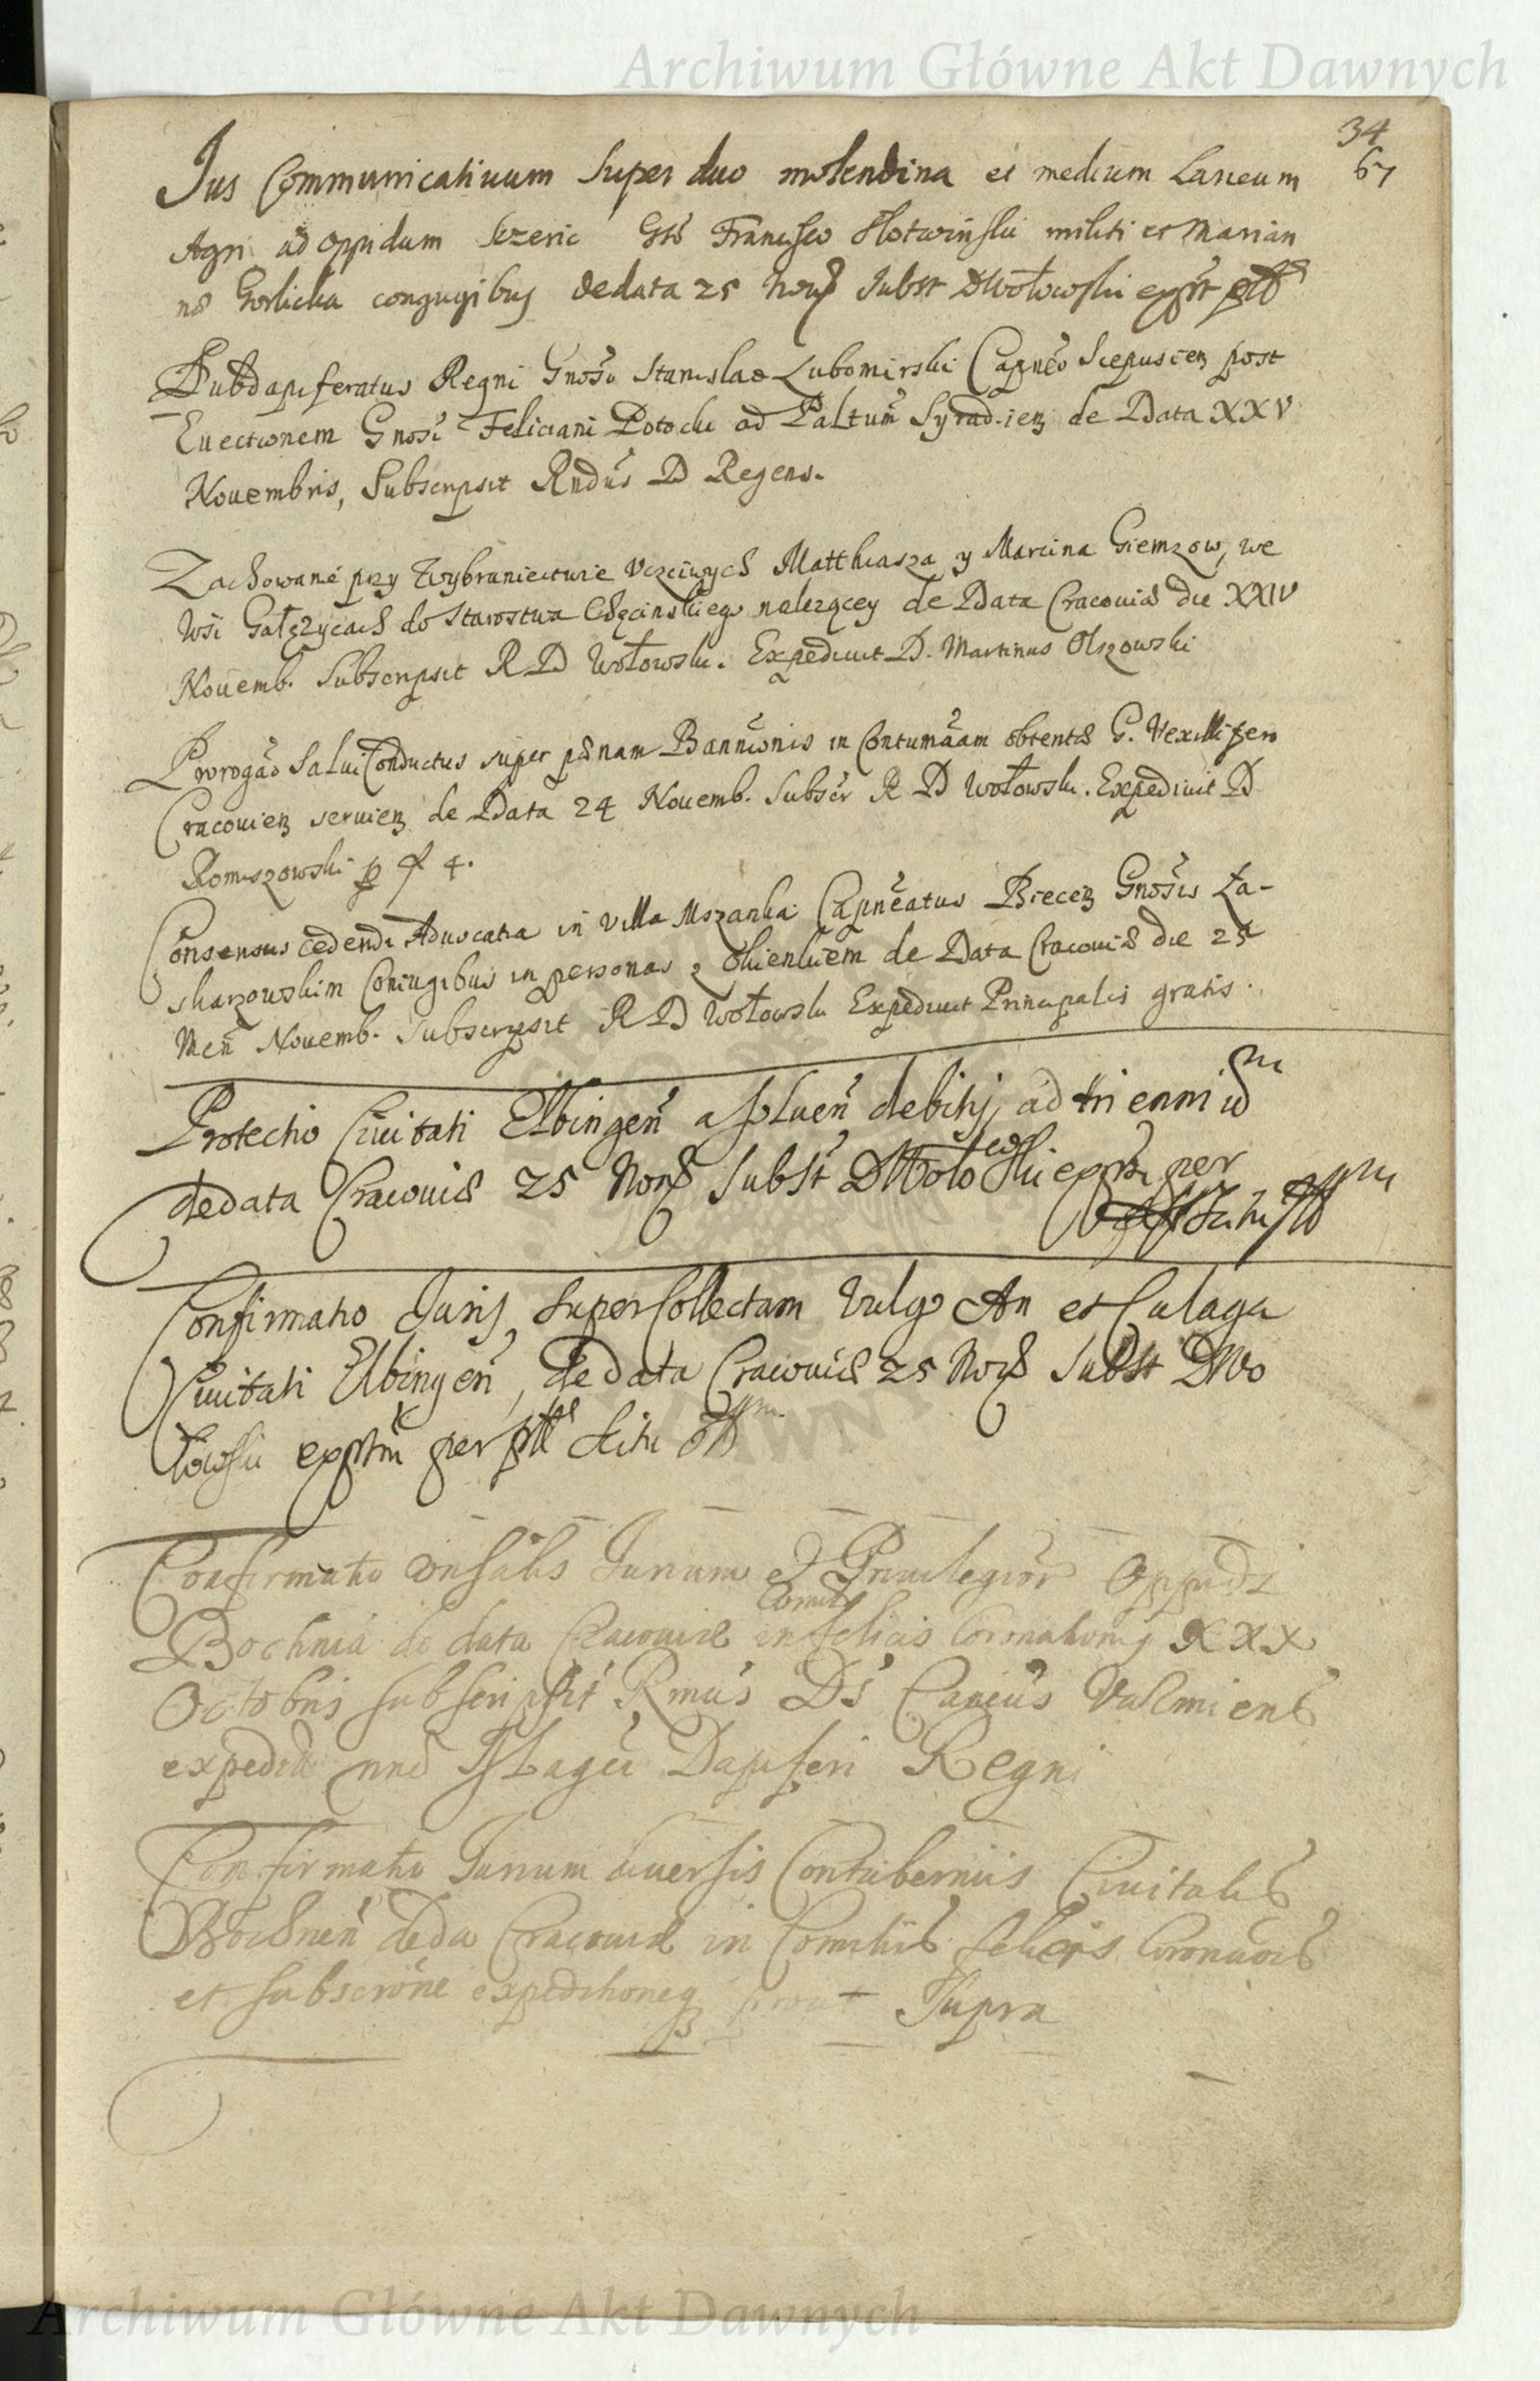 Archiwum Główne Akt Dawnych
34
67
Jus Communicatiuum super duo molendina et medium Laneum
Agri ad oppidum Francisco Slotwinski militi et Marian
Gorlicka coniugibus de data 25 Subst D Wołowski
Subdapiferatus Regni Gnoso Stanislao Lubomirski Capneo Scepusien post
Euectionem Gnosi Feliciani Potocki ad Paltum Syradien de Data XXV
Nouembris, Subscripsit Rndus D Regens.
Zachowanie przy Wybraniectwie Vczciwych Matthiasza y Marcina Giemzow, we
Wsi Gałęzycach do Starostwa Chęcinskiego nalezącey de Data Cracouiae die XXIV
Nouemb. Subscripsit R D Wołowski. Expediuit D. Martinus Olszowski
Prorogao Salui Conductus super paenam Bannionis in Contumaam obtentae G. Vexillifero
Cracouien seruien de Data 24 Nouemb. Subscr R D Wołowski. Expediuit D
Romiszowski 4.
Consensus cedendi Aduocatia in villa Mszanka Capneatus Biecen Gnosis Za-
Coniugibus in personas de Data Cracouiae die 25
Men Nouemb. Subscripsit R D Wołowski Expediuit Principalis gratis.
Protectio Ciuitati Elbingen a soluen debitis, ad triennium
de data Cracouiae 25 Subst D Wołowski per
Confirmatio Juris, super Collectam Vulgo An et Culaga
Ciuitati Elbingen, de data Cracouiae 25 Subst D Wo
łowski per
Confirmatio Jurium et Priuilegior Oppidi
Bochnia de data Cracouiae in Comitis felicis Coronationis XXX
Octobris subscripsit Rmus Ds Cancius
Dapiferi Regni
Confirmatio Jurium diuersis Contuberniis Ciuitatis
Bochnen de da Cracouiae in Comitiis felicis Coronaois
et subscrone expeditioneq prout supra
Archiwum Główne Akt Dawnych